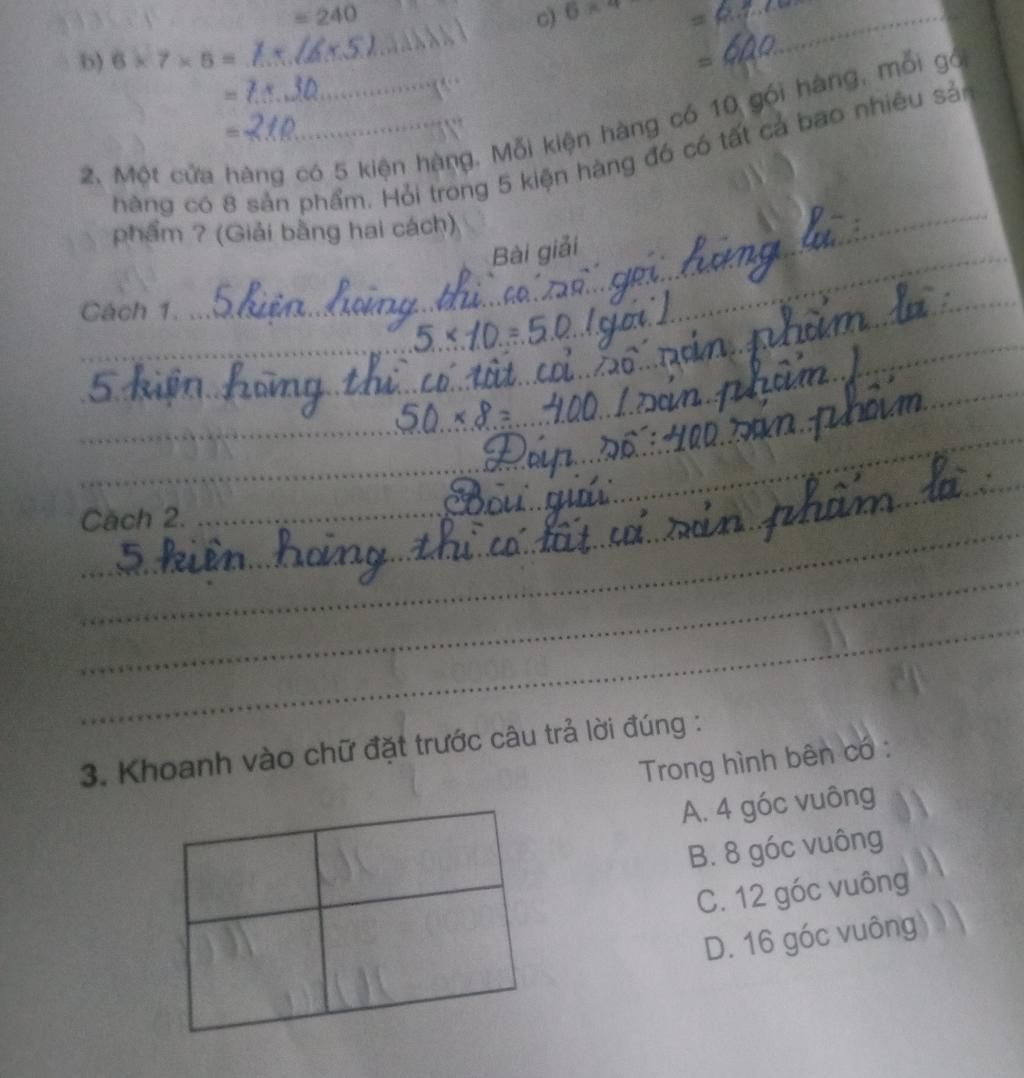 = 240
c) 6 × 4
b) 6 × 7 × 5 = 7 × (6 × 5)
= 600
= 7 × 30
= 210
2. Một cửa hàng có 5 kiện hàng. Mỗi kiện hàng có 10 gói hàng, mỗi gói
hàng có 8 sản phẩm. Hỏi trong 5 kiện hàng đó có tất cả bao nhiêu sản
phẩm ? (Giải bằng hai cách)
Bài giải
Cách 1. 5 kiện hàng thì có số gói hàng là :
5 × 10 = 50 (gói)
5 kiện hàng thì có tất cả số sản phẩm là :
50 × 8 = 400 (sản phẩm)
Đáp số : 400 sản phẩm
Cách 2. Bài giải
5 kiện hàng thì có tất cả sản phẩm là :
3. Khoanh vào chữ đặt trước câu trả lời đúng :
Trong hình bên có :
A. 4 góc vuông
B. 8 góc vuông
C. 12 góc vuông
D. 16 góc vuông